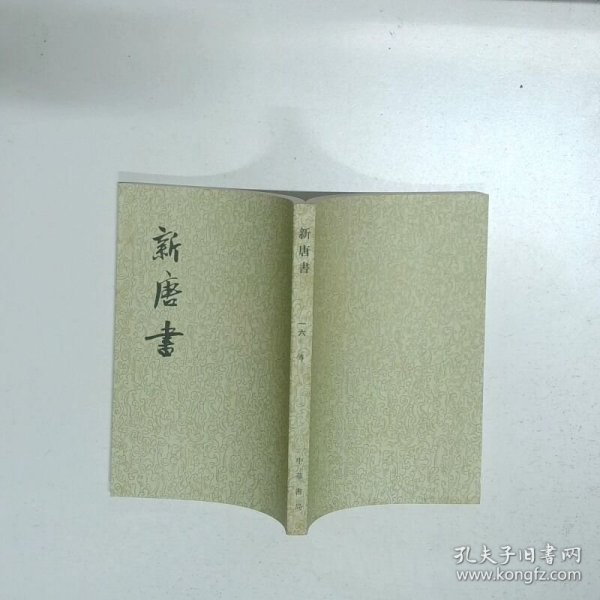 新唐書
新唐書
一六
傳
中華書局
孔夫子旧书网
www.kongfz.com